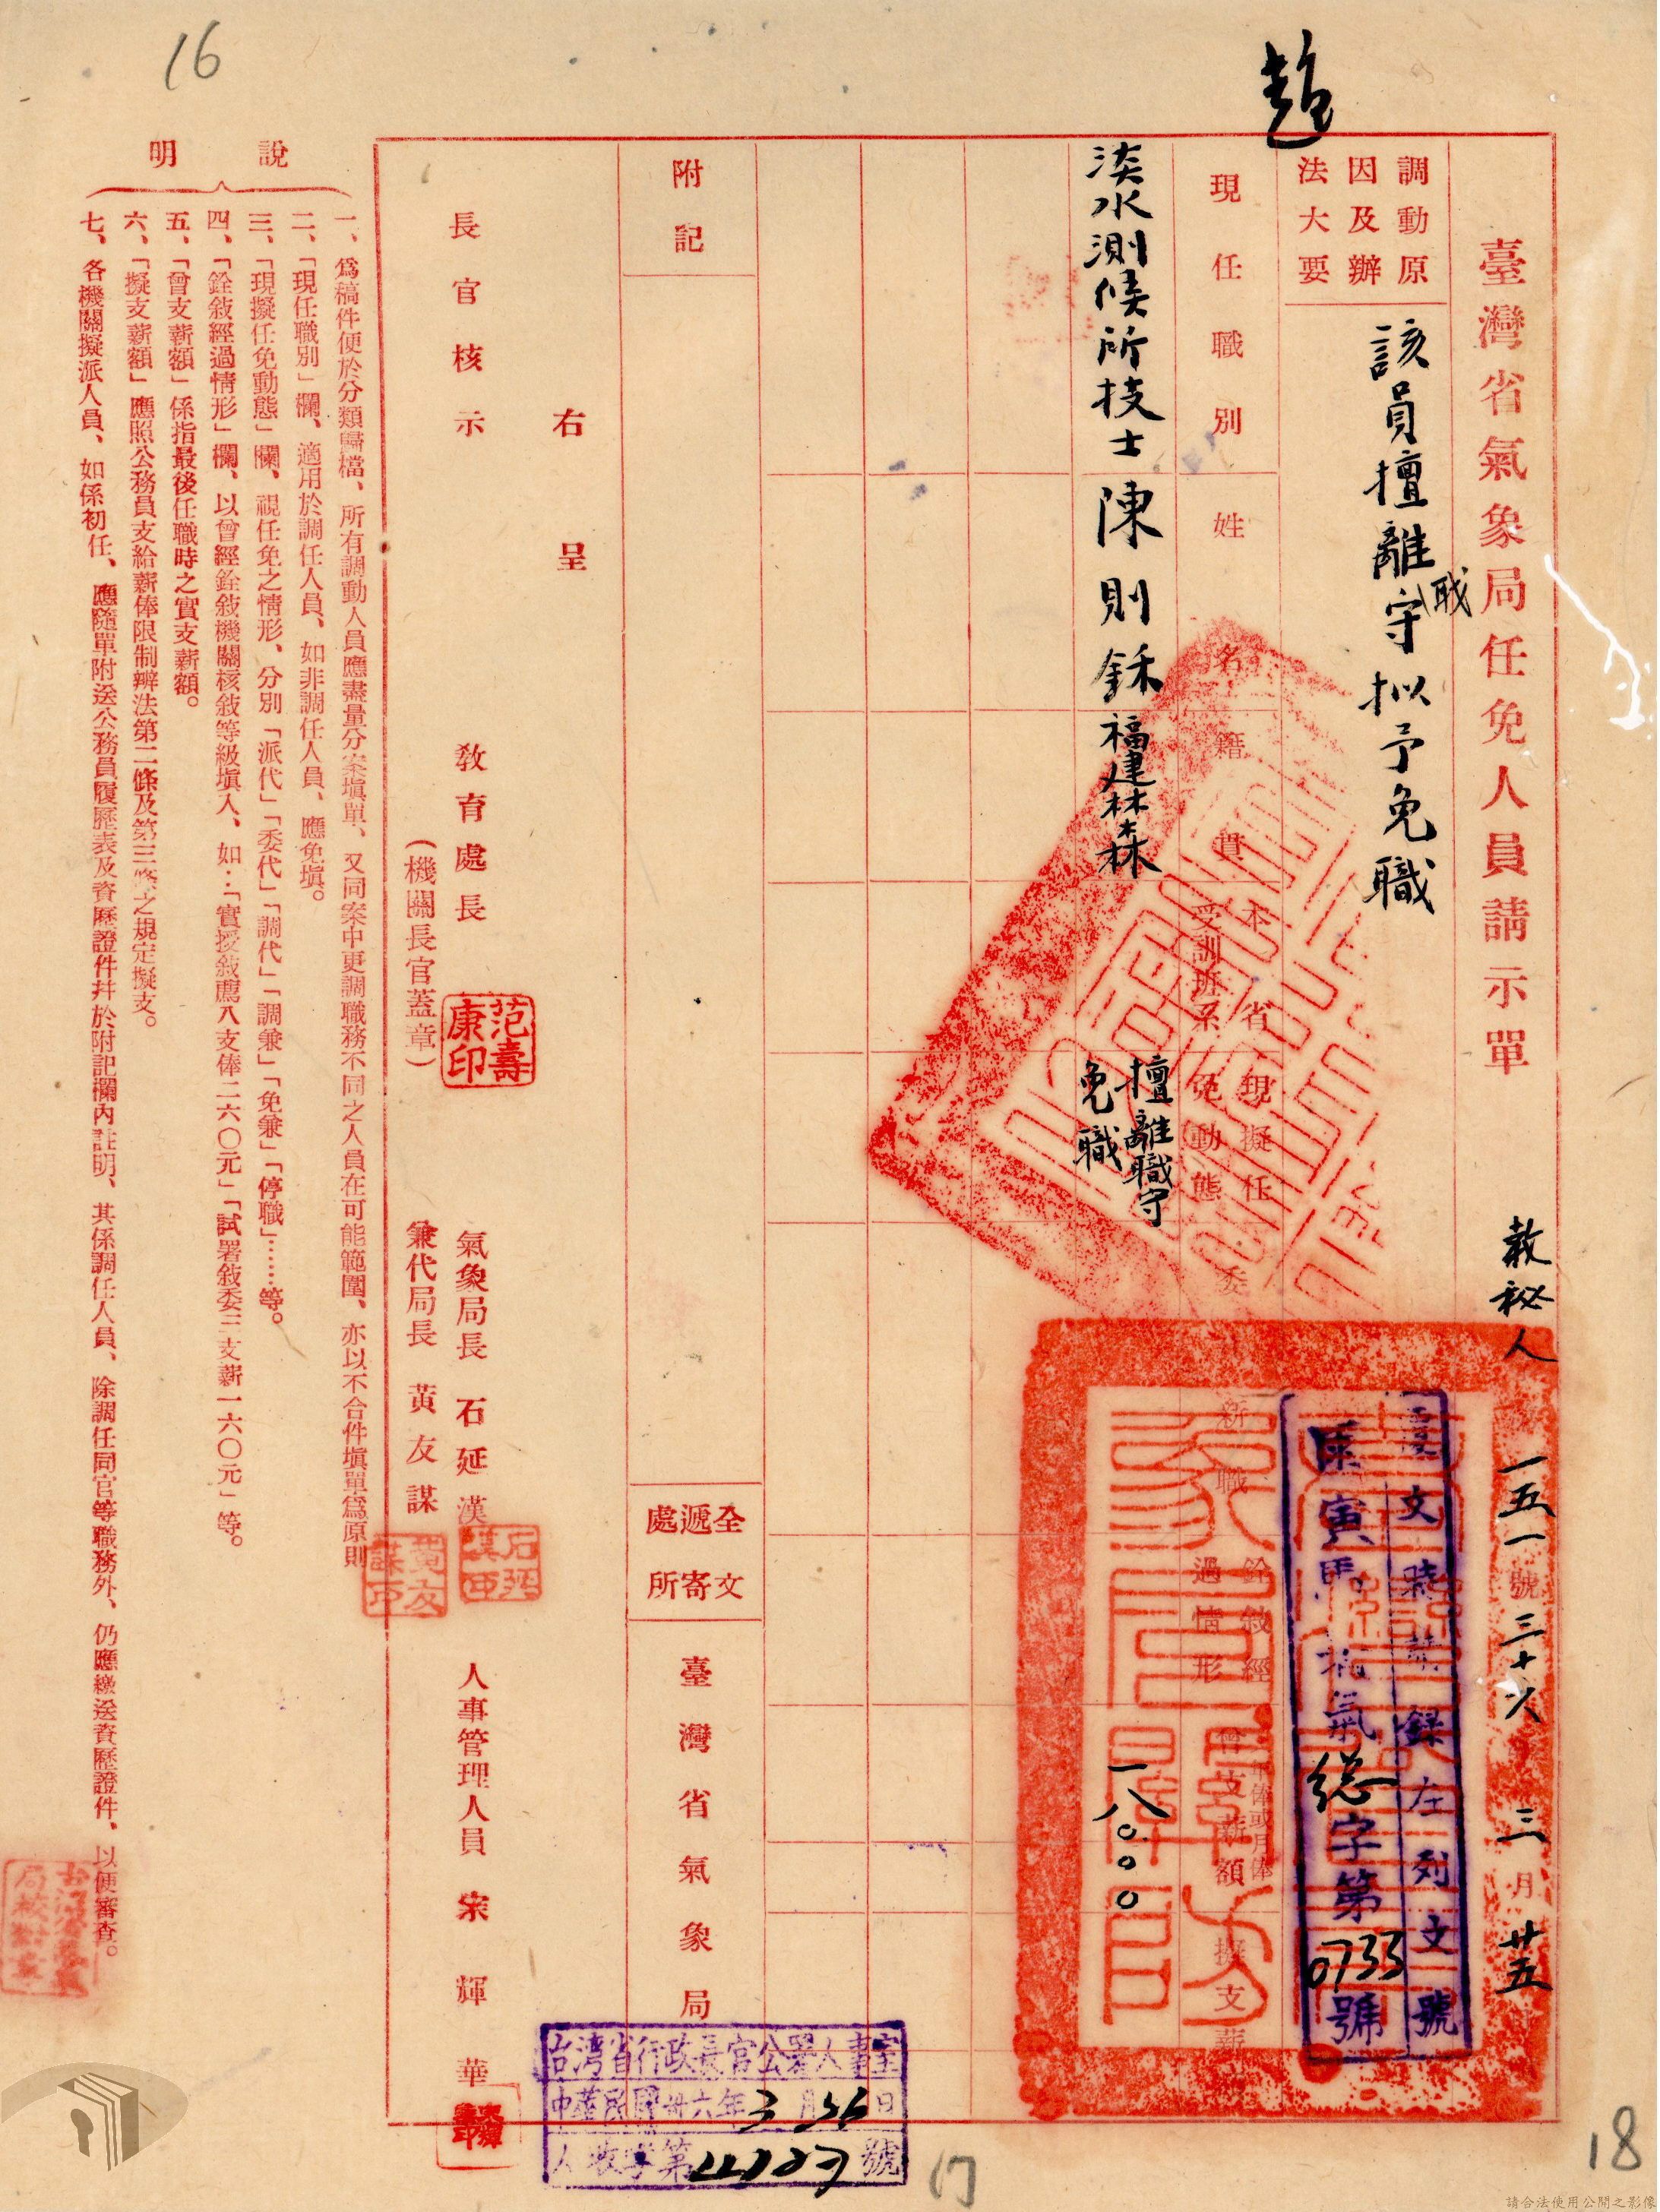 16
趙
臺灣省氣象局任免人員請示單
敎秘人
一五一號三十六
三月廿五
臺文時錄左列文號
寅
氣總字第0733號
調動原
因及辦
法大要
該員擅離職守拟予免職
現任職別
姓名
籍貫
本省
受訓班系
現擬任
免動態
委
新職
銓敘經
過情形
年俸或月俸
曾支薪額
擬支薪
淡水測候所技士
陳則鉌
福建林森
擅離職守
免職
一八〇〇〇
附記
全文
遞寄
處所
臺灣省氣象局
右呈
長官核示
敎育處長
范壽康印
(機關長官蓋章)
氣象局長 石延漢
石延漢印
兼代局長 黃友謀
黃友謀印
人事管理人員 宋輝華
台湾省行政長官公署人事室
中華民國卅六年3月26日
人收字第4127號
說明
一、爲稿件便於分類歸檔、所有調動人員應盡量分案塡單、又同案中更調職務不同之人員在可能範圍、亦以不合件塡單爲原則
二、「現任職別」欄、適用於調任人員、如非調任人員、應免塡。
三、「現擬任免動態」欄、視任免之情形、分別「派代」「委代」「調代」「調兼」「免兼」「停職」……等。
四、「銓敘經過情形」欄、以曾經銓敘機關核敘等級塡入、如：「實授敘薦八支俸二六〇元」「試署敘委三支薪一六〇元」等。
五、「曾支薪額」係指最後任職時之實支薪額。
六、「擬支薪額」應照公務員支給薪俸限制辦法第二條及第三條之規定擬支。
七、各機關擬派人員、如係初任、應隨單附送公務員履歷表及資歷證件幷於附記欄內註明、其係調任人員、除調任同官等職務外、仍應繳送資歷證件、以便審查。
17
18
請合法使用公開之影像